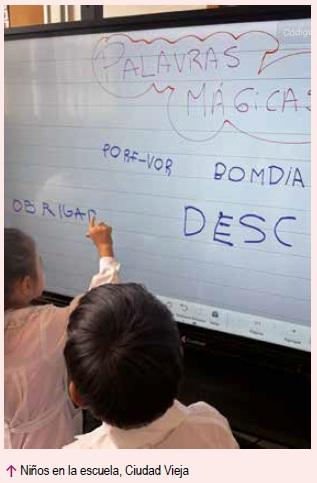 Códig
PALAVRAS
MÁGICAS
PORF-VOR BOMDIA
OBRIGAD DESC
↑ Niños en la escuela, Ciudad Vieja